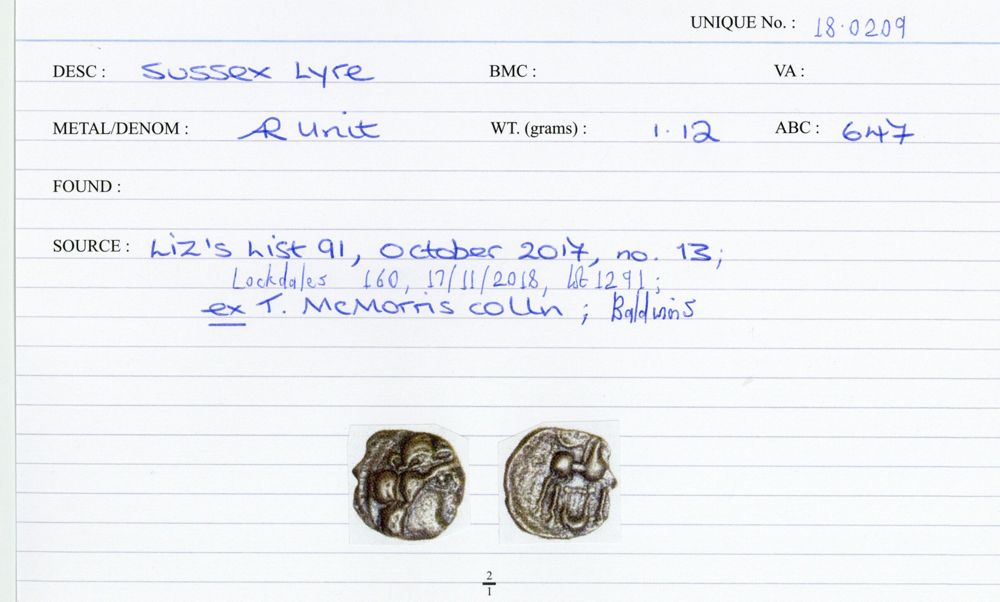 UNIQUE No. : 18·0209
DESC : Sussex Lyre BMC : VA :
METAL/DENOM : AR Unit WT. (grams) : 1·12 ABC : 647
FOUND :
SOURCE : Liz's List 91, October 2017, no. 13;
Lockdales 160, 17/11/2018, lot 1291;
ex T. McMorris colln ; Baldwin's
2
1